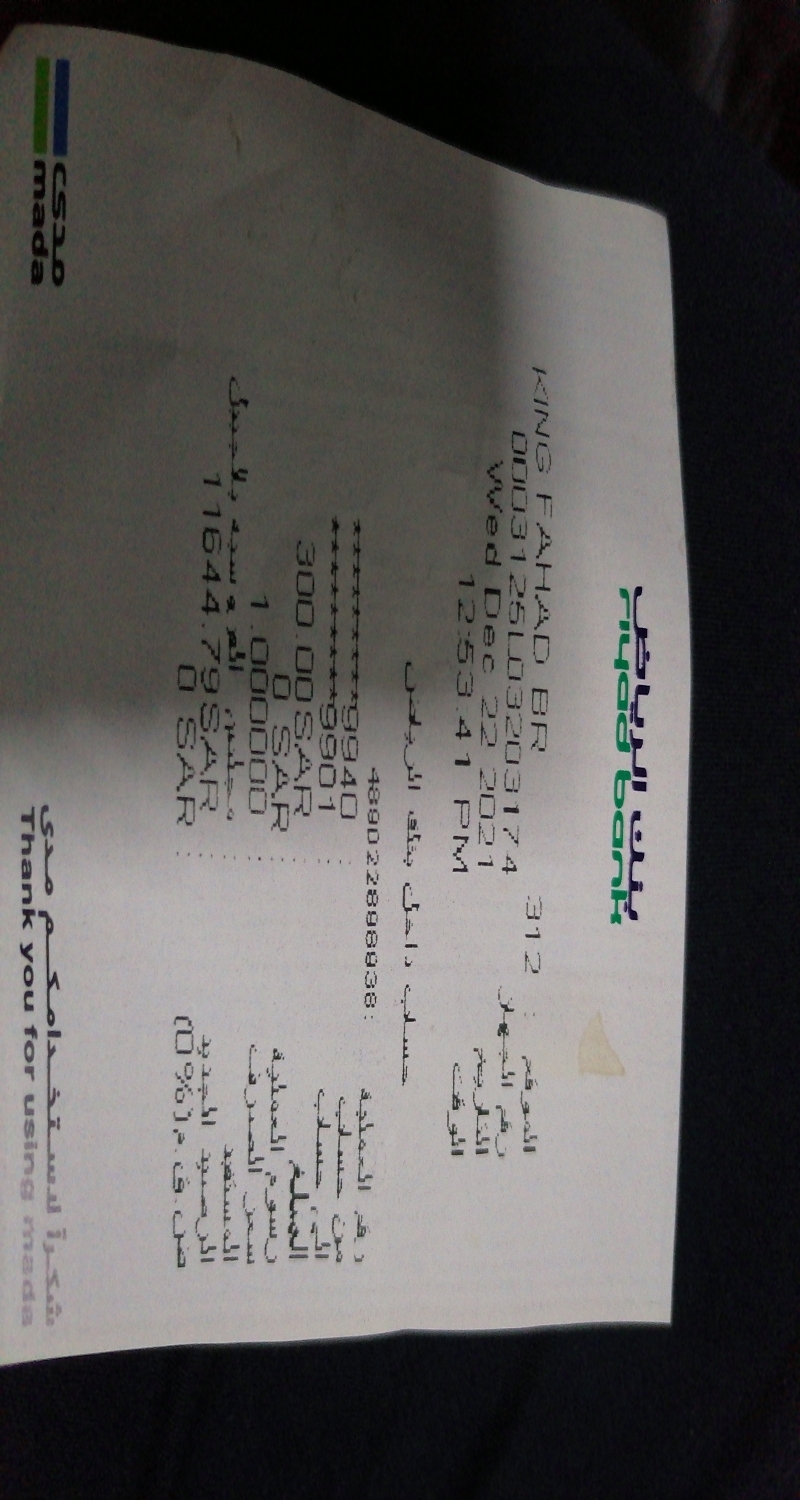 بنك الرياض
riyad bank
الموقع : 312 KING FAHAD BR
رقم الجهاز 0003125L03203174
التاريخ Wed Dec 22 2021
الوقت 12:53:41 PM
حساب داخل بنك الرياض
رقم العملية :489022898938
من حساب : **********9940
الى حساب : **********9901
المبلغ : 300.00SAR
رسوم العملية : 0 SAR
سعر الصرف : 1.000000
المستفيد :
الرصيد الجديد : 11644.79SAR
ض.ق.م(0%) : 0 SAR
شكراً لاستخدامكم مدى
Thank you for using mada
مدى
mada